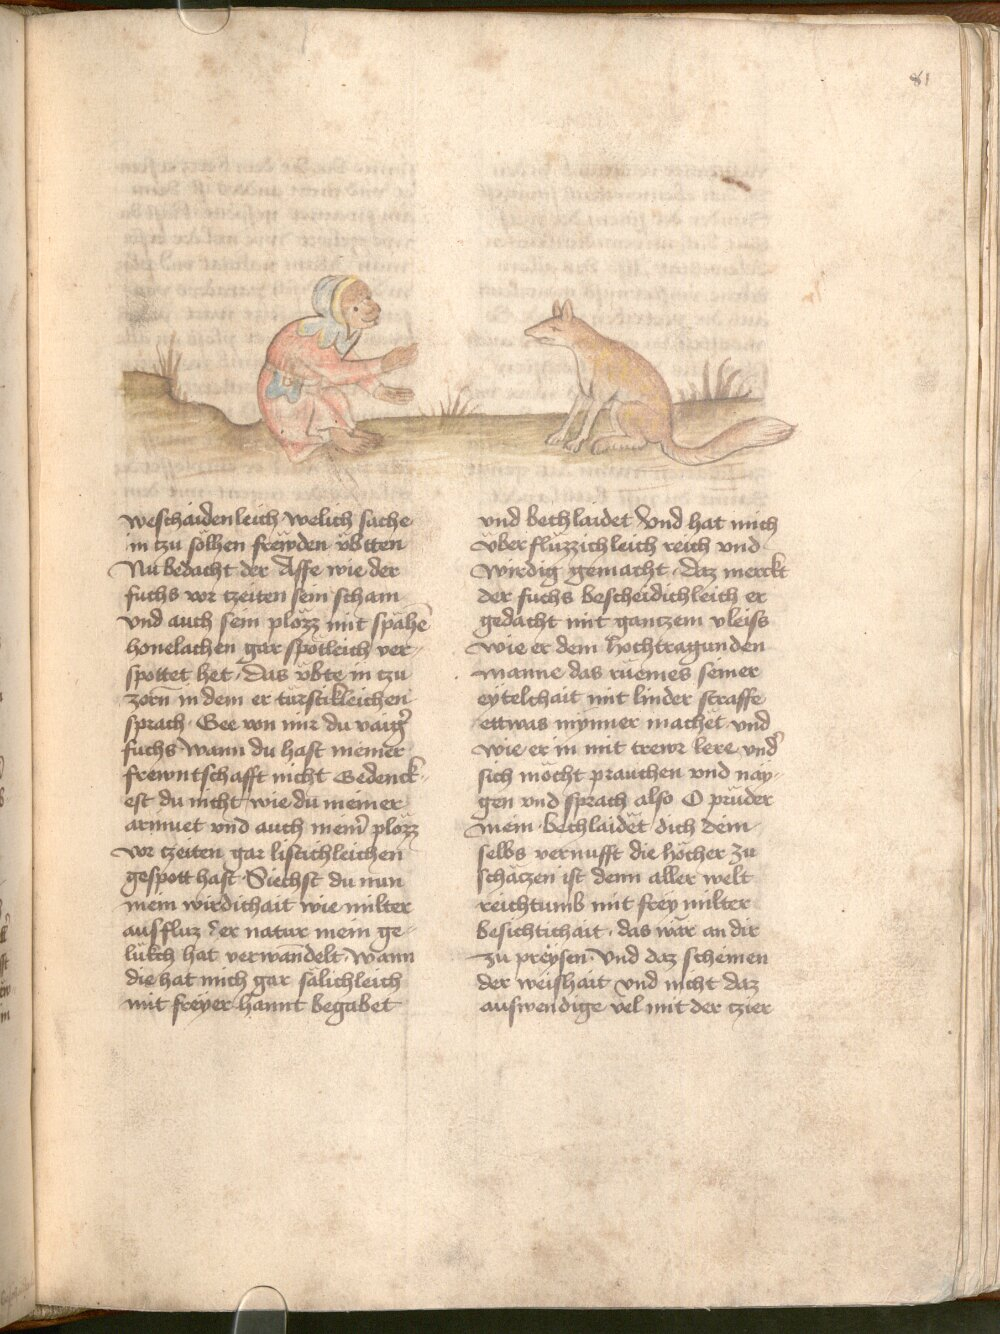 81
weschaidenleich welich sache
in tzu sölhen frewden vbtten
Nu bedacht der Affe wie der
fuchs vor tzeiten sein scham
vnd auch sein plözz mit spähē
honelachen gar spötleich ver-
spottet het · das vbte in tzu
zorn̄ in dem er türstikleichen
sprach · Gee von mir du vaig᷑
fuchs wann du hast meiner
frewntschafft nicht Gedenck-
est du nicht wie du meiner
armuet vnd auch mein᷑ plözz
vor tzeiten gar listichleichen
gespott hast · Siechst du nun
mein wirdichait wie milter
ausfluz d᷑er natur mein ge-
lükch hat verwandelt · wann
die hat mich gar sälichleich
mit freyer hannt begabet
vnd bechlaidet vnd hat mich
vberfluzzichleich reich vnd
wirdig gemacht · daz merckt
der fuchs bescheidichleich er
gedacht mit gantzem vleiss
wie er dem hochtragunden
manne das ruemes seiner
eytelchait mit linder straffe
ettwas mynner machet vnd
wie er in mit trewr lere vnd᷑
sich möcht prauchen vnd nay-
gen vnd sprach also O prüder
mein bechlaidet dich dein
selbs vernufft die höcher zu
schäczen ist denn aller welt
reichtumb mit frey milter
besichtichait · das wär an dir
zu preysen vnd daz scheinen
der weishait vnd nicht daz
auswendige vel mit der tzier